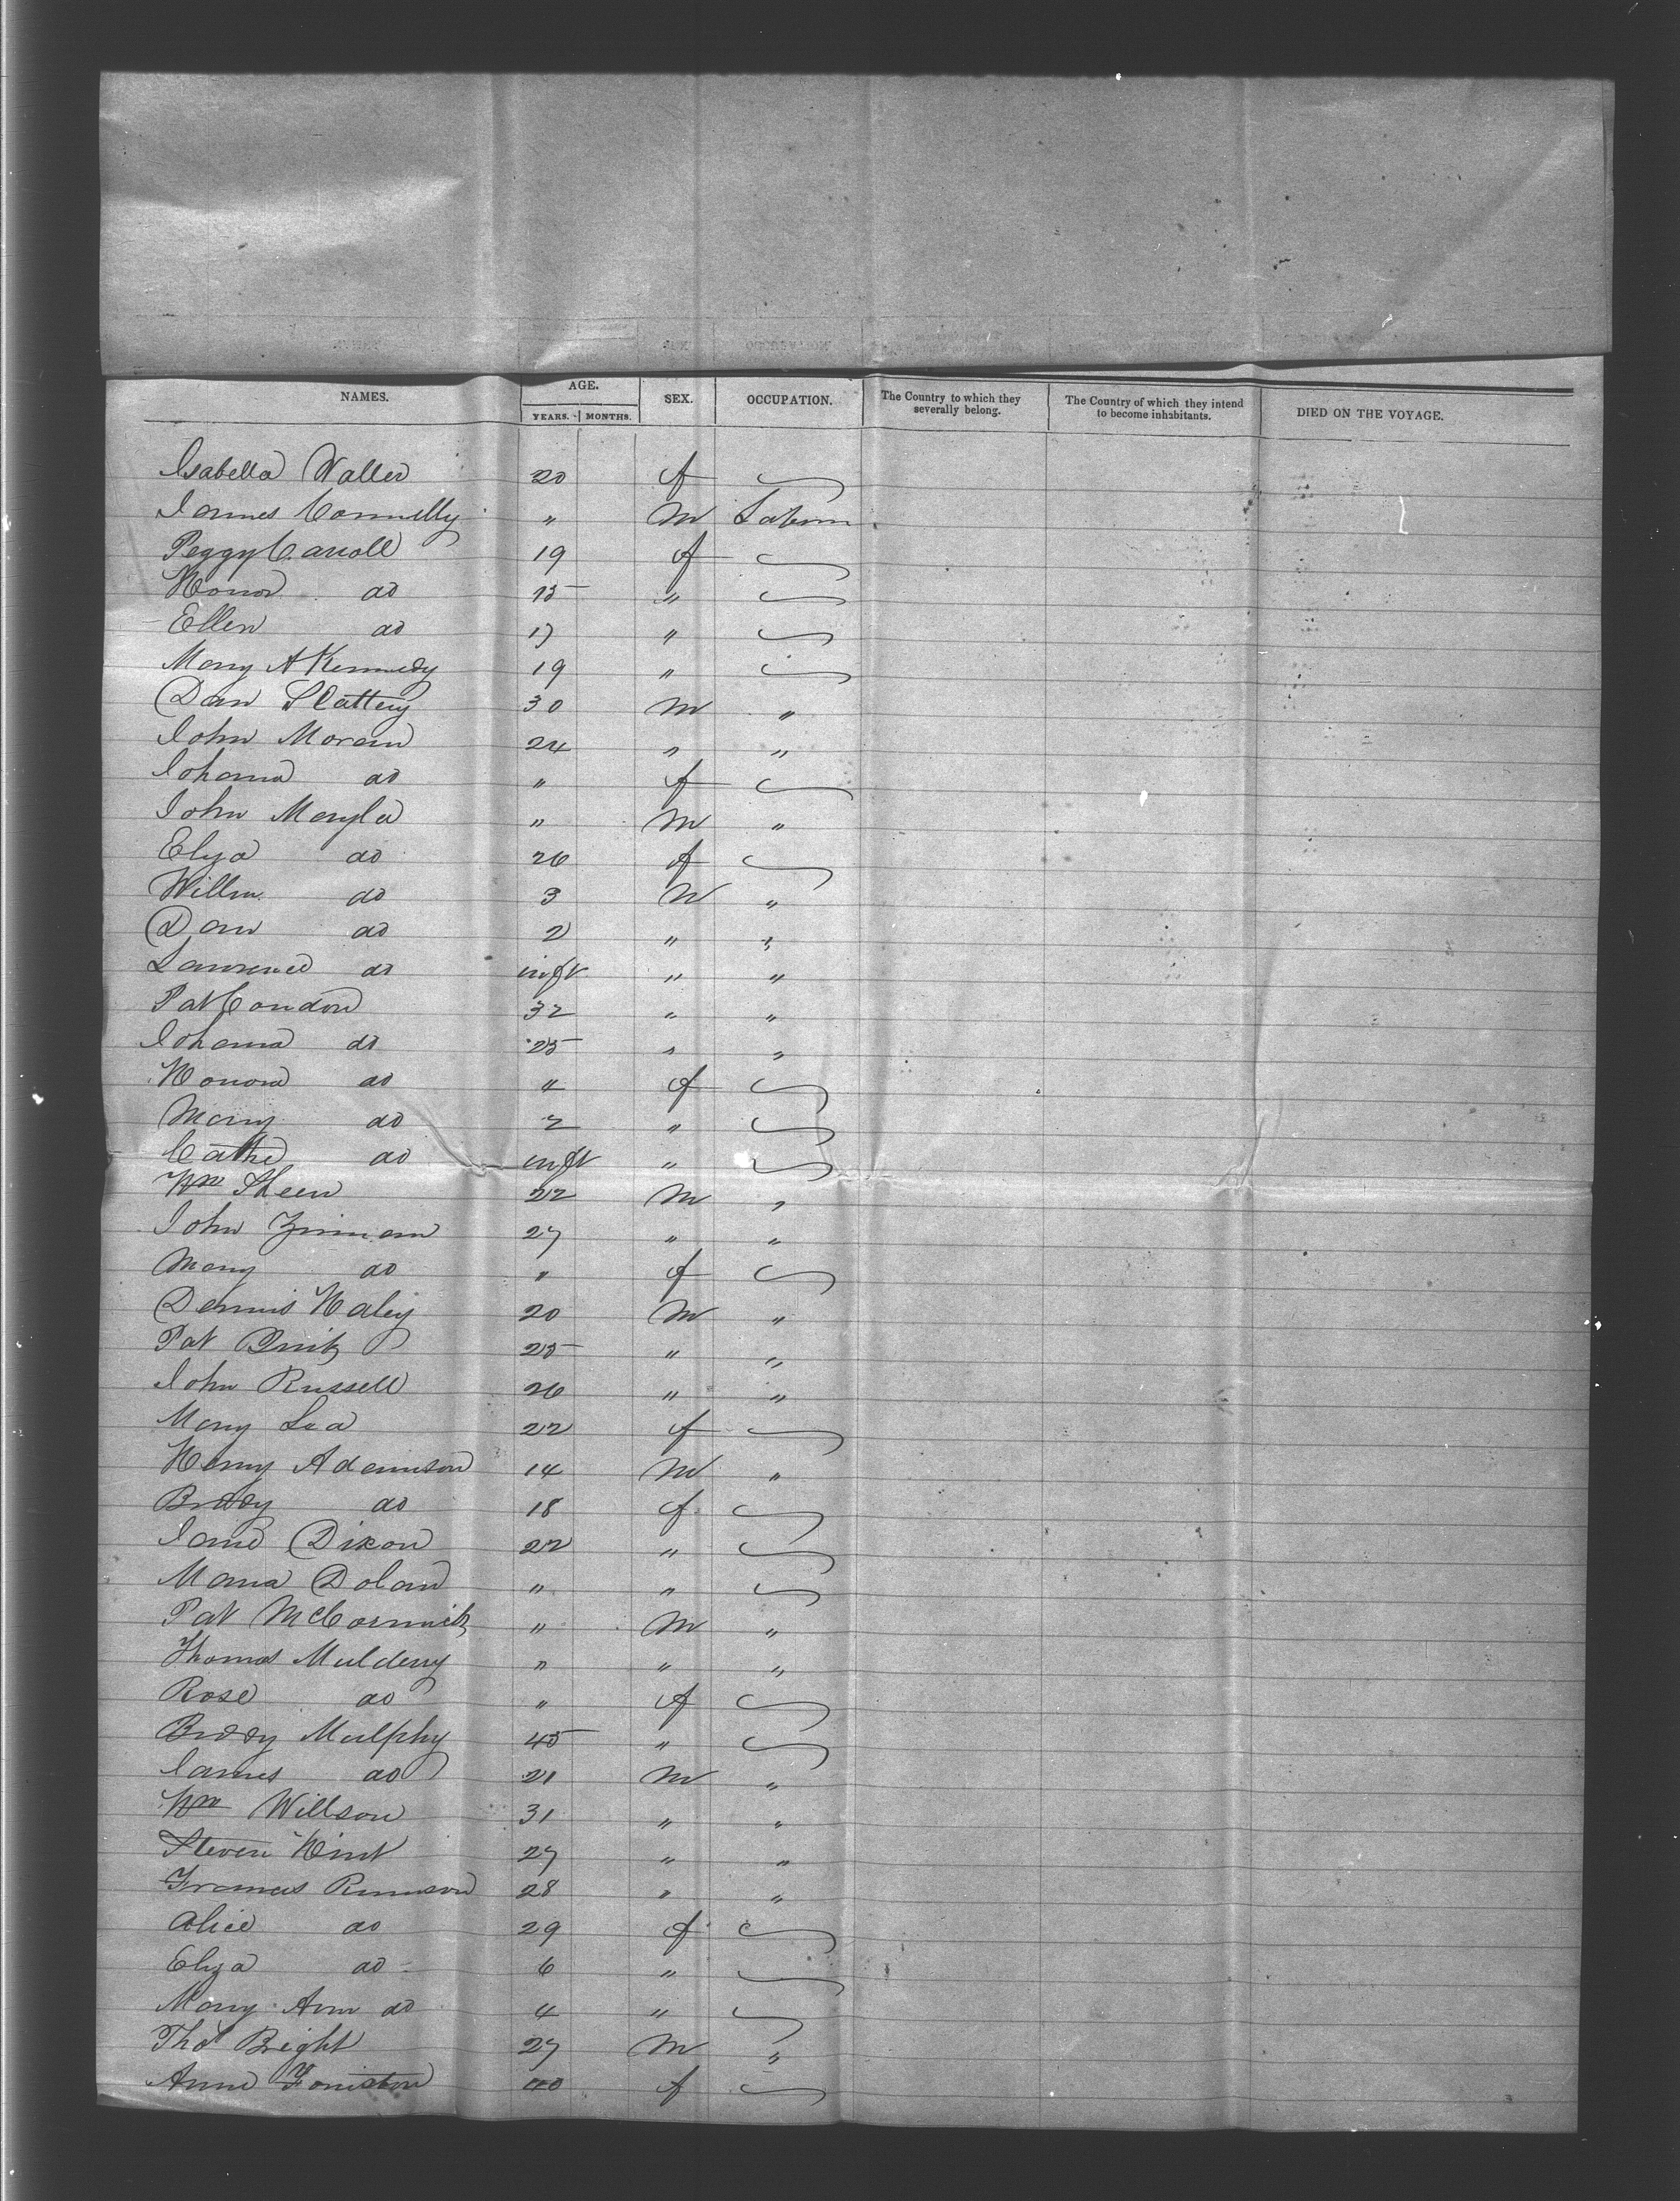 NAMES. AGE. YEARS. MONTHS. SEX. OCCUPATION. The Country to which they severally belong. The Country of which they intend to become inhabitants. DIED ON THE VOYAGE.
Isabella Waller 20 f
James Connelly " M Labour
Peggy Carroll 19 f
Honor do 15 "
Ellen do 17 "
Mary A Kennedy 19 "
Dan Slattery 30 M "
John Moran 24 " "
Johana do " f
John " M "
Eliza do 26 f
Willm do 3 M "
Dan do 2 " "
Lawrence do inft " "
Pat Condon 32 " "
Johana do 25 " "
Honora do " f
Mary do 2 "
Cathe do inft "
Wm Sheen 22 M "
John 27 " "
Mary do " f
Dennis Haley 20 M "
Pat Quirk 25 " "
John Russell 26 " "
Mary Lea 22 f
Henry Adamson 14 M "
Biddy do 18 f
Jane Dixon 22 "
Maria Dolan " "
Pat McCormick " M "
Thomas Mulderry " " "
Rose do " f
Biddy Mulphy 45 "
James do 21 M "
Wm Willson 31 " "
Steven Hint 27 " "
Frances 28 " "
Alice do 29 f
Eliza do 6 "
Mary Ann do 4 "
Thos Bright 27 M "
Anne 40 f